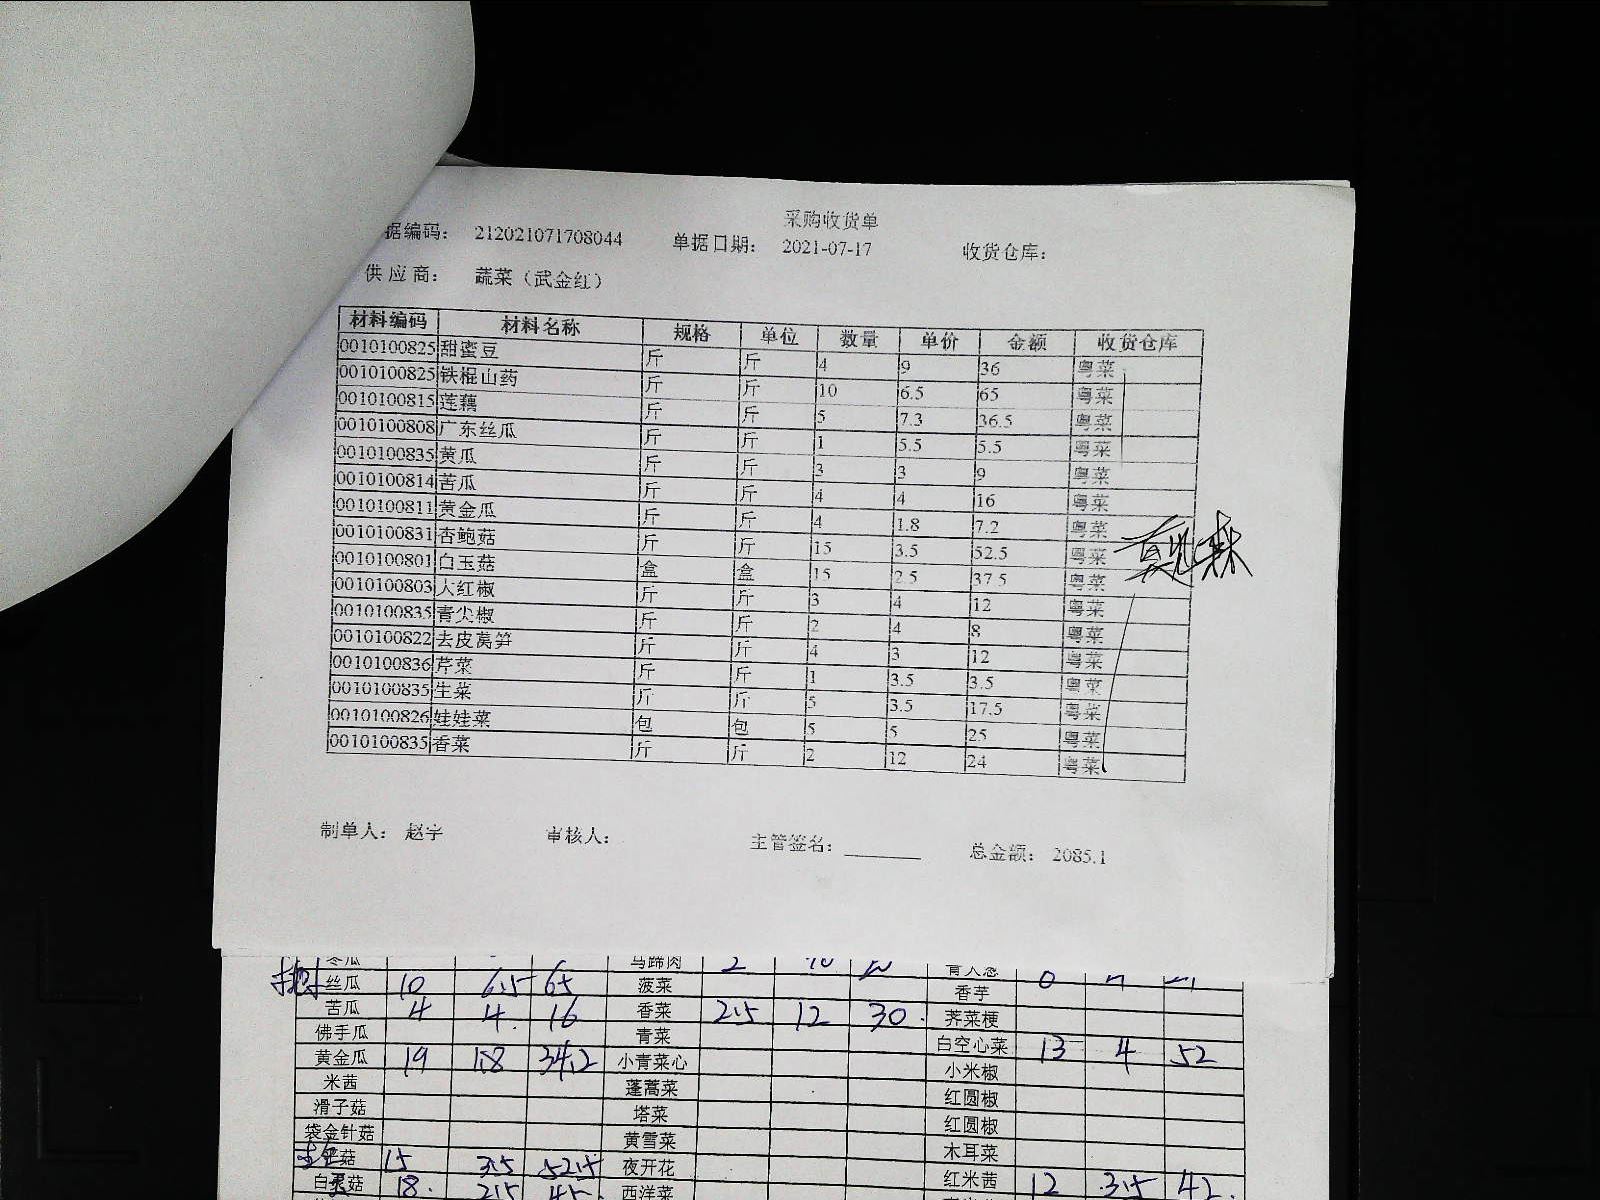 采购收货单
据编码: 212021071708044 单据日期: 2021-07-17 收货仓库:
供应商: 蔬菜（武金红）
材料编码 材料名称 规格 单位 数量 单价 金额 收货仓库
0010100825 甜蜜豆 斤 斤 4 9 36 粤菜
0010100825 铁棍山药 斤 斤 10 6.5 65 粤菜
0010100815 莲藕 斤 斤 5 7.3 36.5 粤菜
0010100808 广东丝瓜 斤 斤 1 5.5 5.5 粤菜
0010100835 黄瓜 斤 斤 3 3 9 粤菜
0010100814 苦瓜 斤 斤 4 4 16 粤菜
0010100811 黄金瓜 斤 斤 4 1.8 7.2 粤菜
0010100831 杏鲍菇 斤 斤 15 3.5 52.5 粤菜
0010100801 白玉菇 盒 盒 15 2.5 37.5 粤菜
0010100803 大红椒 斤 斤 3 4 12 粤菜
0010100835 青尖椒 斤 斤 2 4 8 粤菜
0010100822 去皮莴笋 斤 斤 4 3 12 粤菜
0010100836 芹菜 斤 斤 1 3.5 3.5 粤菜
0010100835 生菜 斤 斤 5 3.5 17.5 粤菜
0010100826 娃娃菜 包 包 5 5 25 粤菜
0010100835 香菜 斤 斤 2 12 24 粤菜
制单人: 赵宇 审核人: 主管签名: 总金额: 2085.1
冬瓜 马蹄肉 2 10
丝瓜 10 6.5 65 菠菜 香芋
苦瓜 4 4. 16 香菜 2.5 12 30. 荠菜梗
佛手瓜 青菜 白空心菜 13 4 52
黄金瓜 19 1.8 34.2 小青菜心 小米椒
米茜 蓬蒿菜 红圆椒
滑子菇 塔菜 红圆椒
袋金针菇 黄雪菜 木耳菜
菇 15 3.5 52.5 夜开花 红米茜 12 3.5 42.
白灵菇 18. 2.5 45. 西洋菜